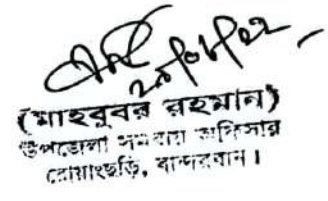 (মাহবুবর রহমান)
উপজেলা সমবায় অফিসার
রোয়াংছড়ি, বান্দরবান।